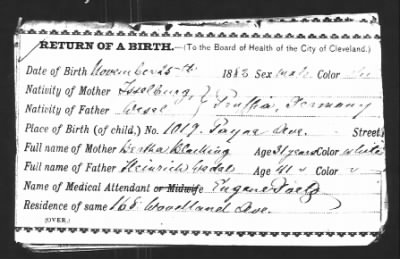 RETURN OF A BIRTH.—(To the Board of Health of the City of Cleveland.)
Date of Birth November 25th 1883 Sex male Color
Nativity of Mother Isselburg }
Nativity of Father Wesel } Prussia, Germany
Place of Birth (of child,) No. 1019. Payne Ave. Street
Full name of Mother Bertha Age 31 years Color white
Full name of Father Heinrich Age 41 " Color "
Name of Medical Attendant or Midwife Eugene
Residence of same 168 Woodland Ave.
(OVER.)